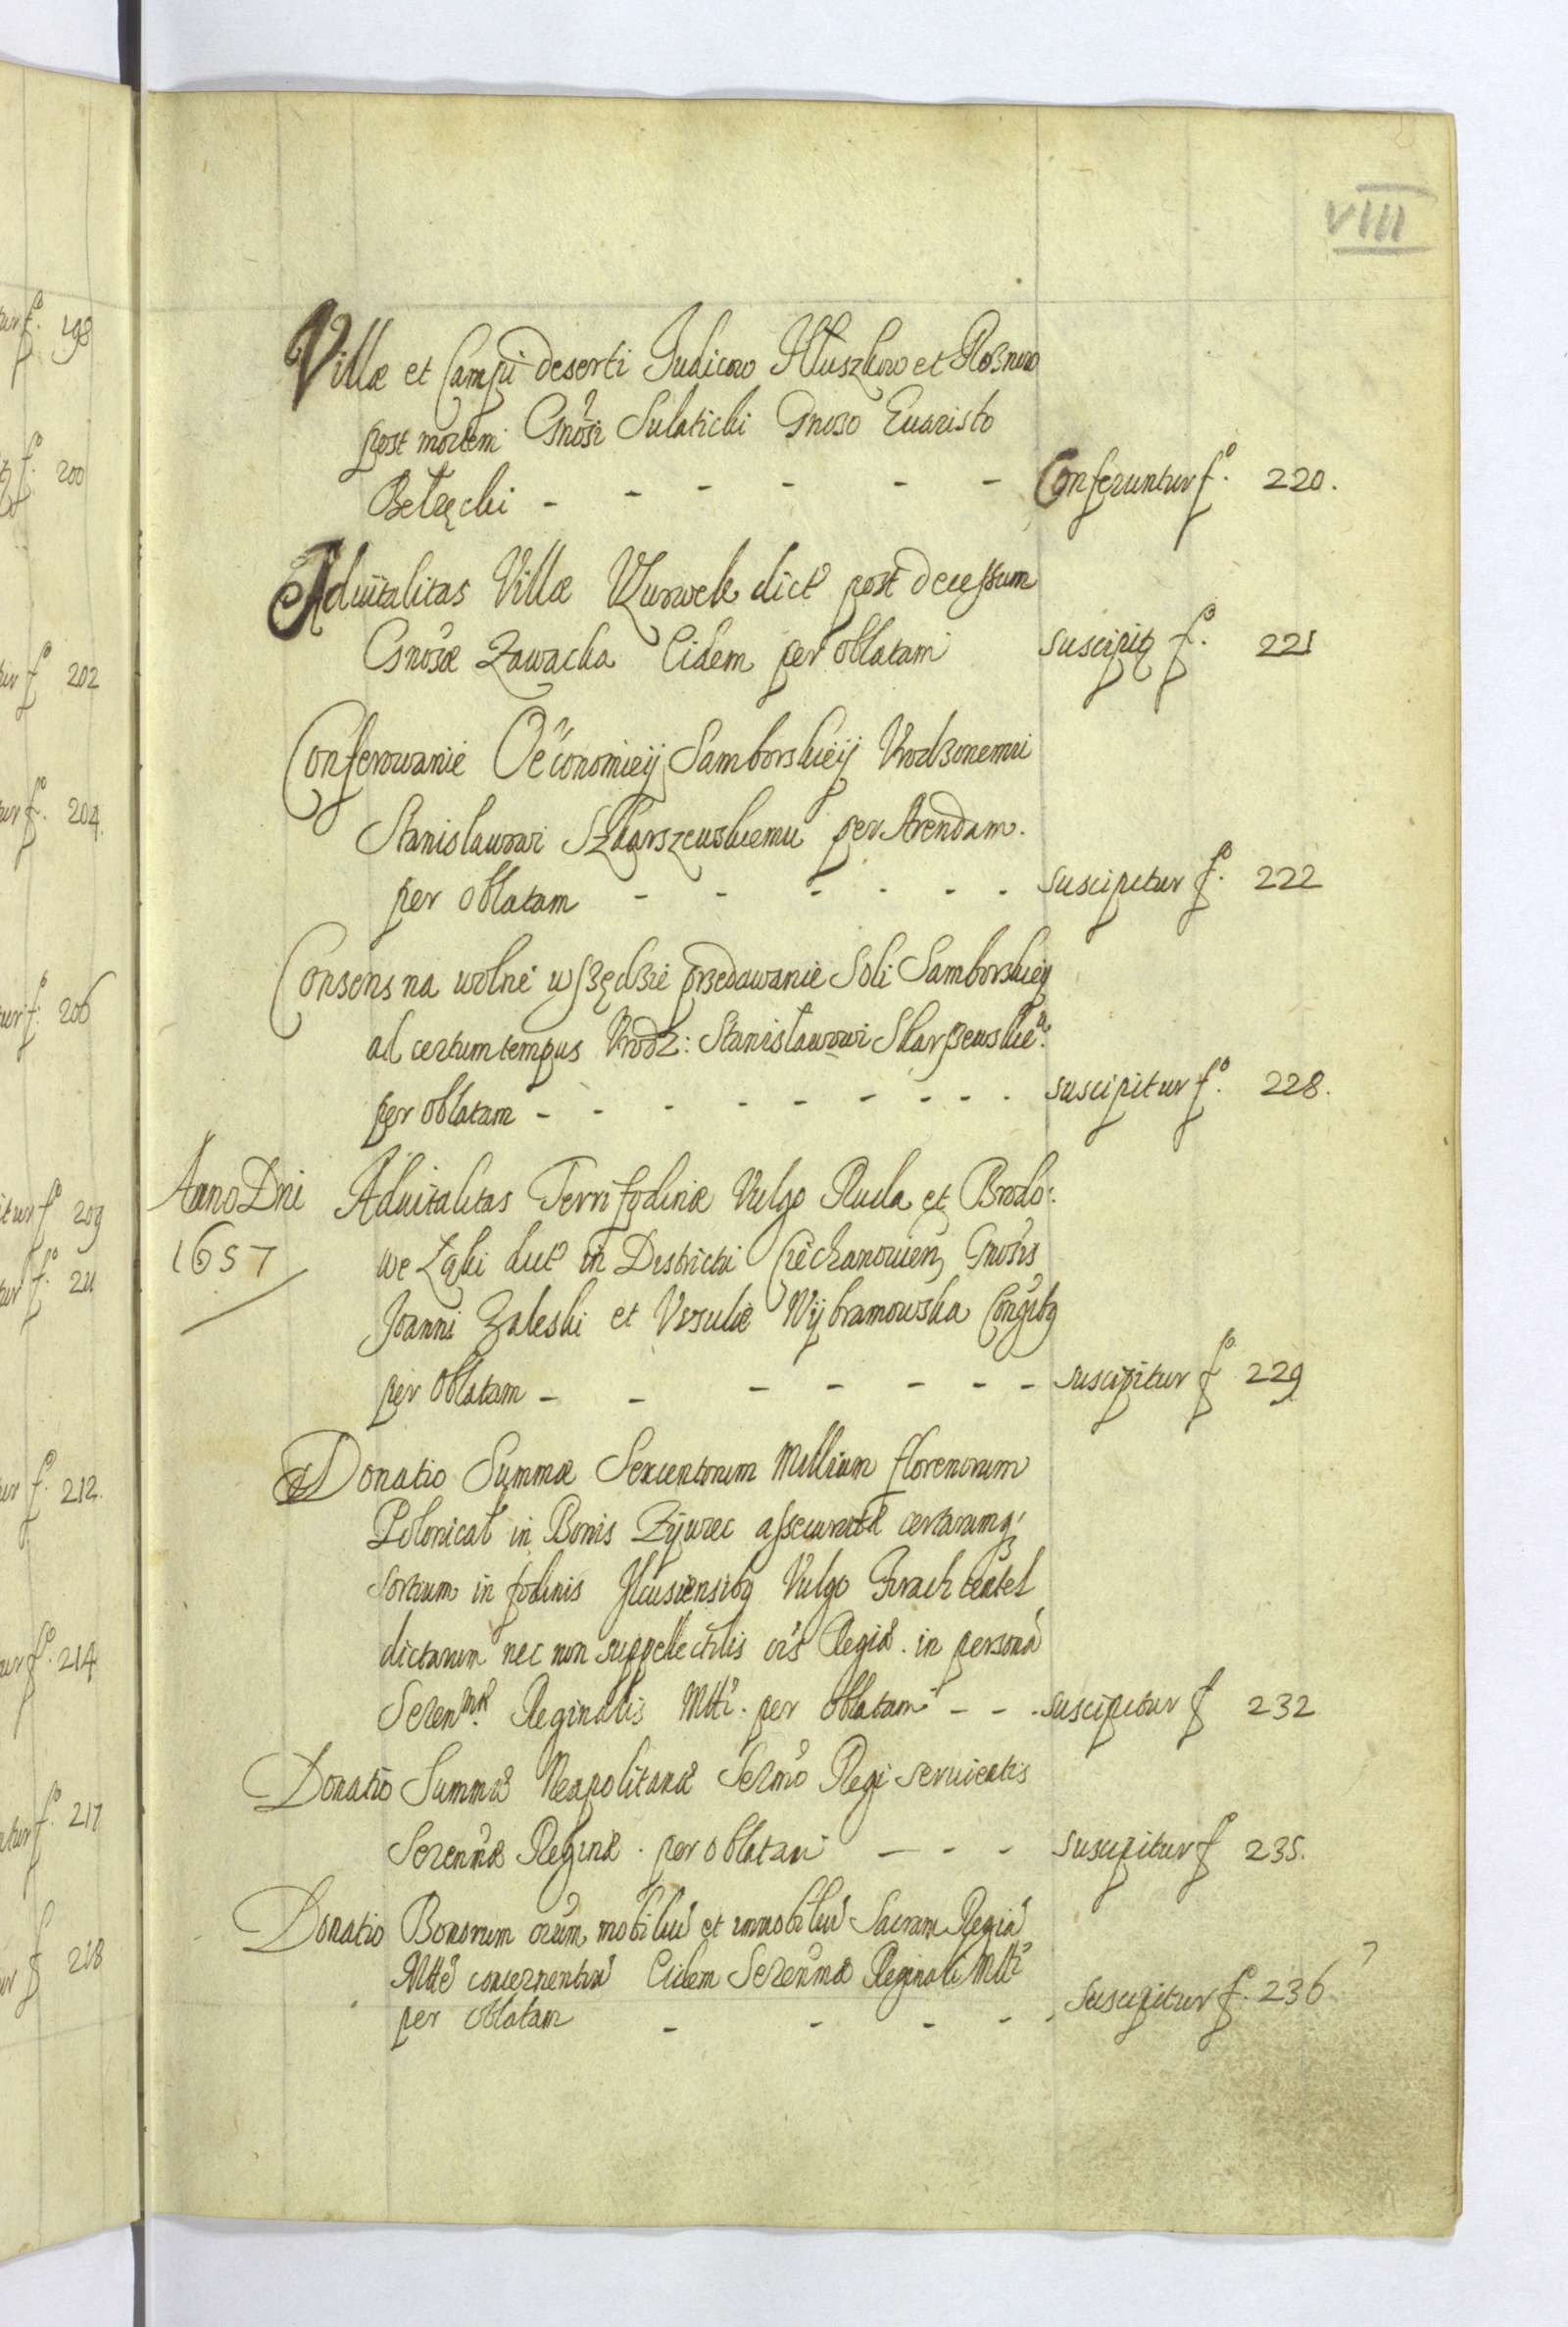 VIII
Villæ et Campi deserti Judicow Hluszkow et Rożnow
post mortem Gnosi Sulaticki Gnoso Euaristo
Bełzęcki - - - - - - Conferuntur fo. 220.
Aduitalitas Villæ Uzurwek dict post decessum
Gnosæ Zawacka Eidem per oblatam suscipitq fo. 221
Conferowanie Oeconomieij Samborskieij Vrodzonemu
Stanislawowi Szkarszewskiemu per Arendam.
per oblatam - - - - - - suscipitur fo. 222
Consens na wolne wszędzie przedawanie Soli Samborskiey
ad certum tempus Vrodz: Stanisławowi Skarszewskie:
per oblatam - - - - - - - - - suscipitur fo. 228.
Anno Dni Aduitalitas Ferri fodinæ Vulgo Ruda et Brodo:
1657 we Łąki dict in Districtu Ciechanowien Gnosis
Joanni Zaleski et Vrsulæ Wybramowska Coniugibq
per oblatam - - - - - - - suscipitur fo 229
Donatio Summæ Sexcentorum Millium florenorum
Polonical in Bonis Zijwiec assecuratæ certarumq
sortium in fodinis Ilcusiensibq Vulgo
dictarum nec non suppellectilis ois Regiæ in persona
Seren.mæ Reginalis Mtti. per oblatam - - - suscipitur f 232
Donatio Summæ Neapolitanæ Sermo Regi seruientis
Serenmæ Reginæ. per oblatam - - - suscipitur f 235.
Donatio Bonorum oium mobiliu et immobiliu Sacram Regiā
Mtte concernentiu Eidem Serenmæ Reginali Mtti
per oblatam - - - - - suscipitur fo. 236